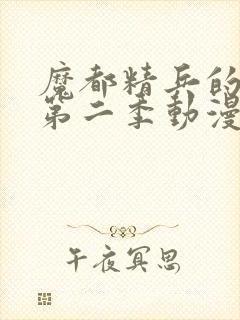 魔都精兵的
第二季動漫
午夜冥思